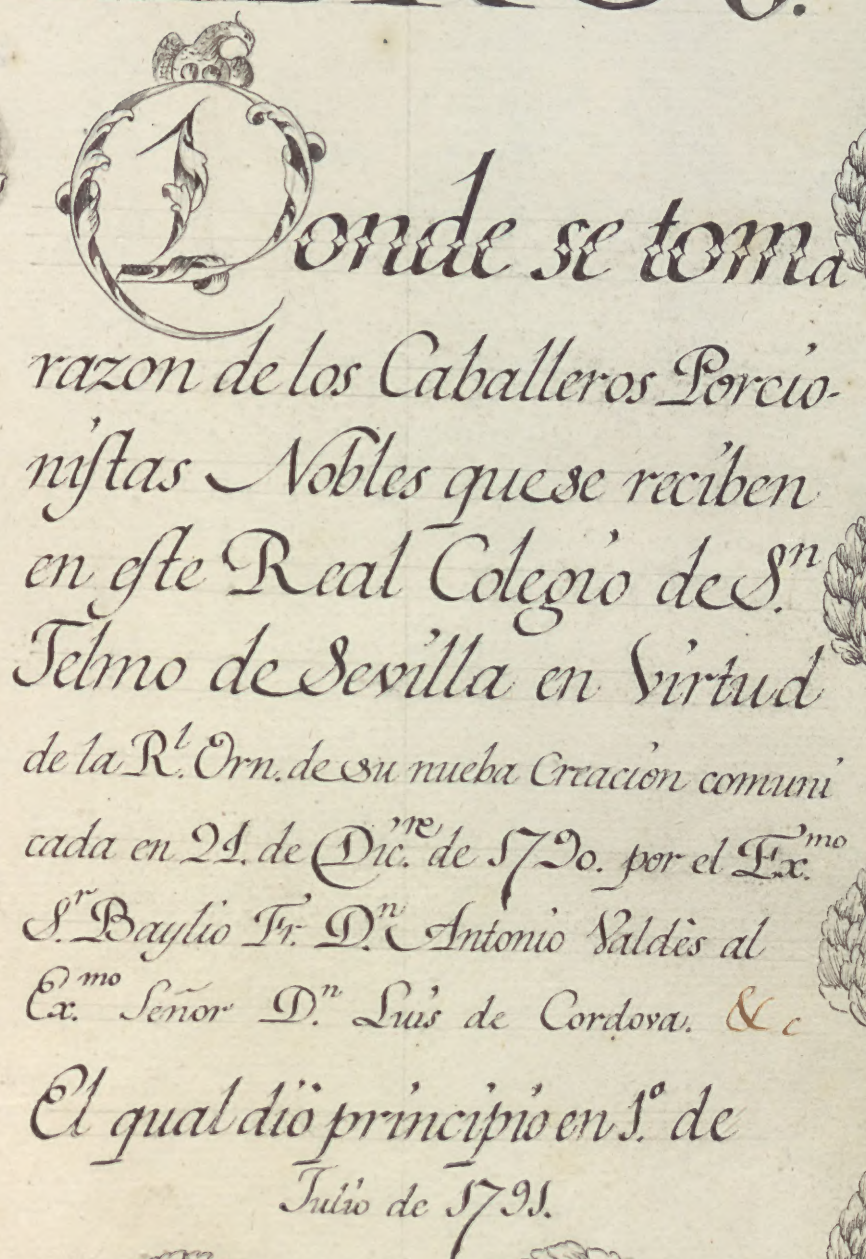 Donde se toma
razon de los Caballeros Porcio-
nistas Nobles que se reciben
en este Real Colegio de S.n
Telmo de Sevilla en Virtud
de la R.l Orn. de su nueba Creacion comuni
cada en 21. de Dic.re de 1790. por el Ex.mo
S.r Baylio Fr. D.n Antonio Valdès al
Ex.mo Señor D.n Luis de Cordova. &c
El qual dió principio en 1.º de
Julio de 1791.